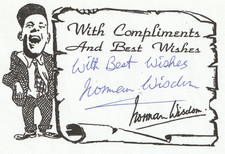 With Compliments
And Best Wishes
With Best Wishes
Norman Wisdom
Norman Wisdom